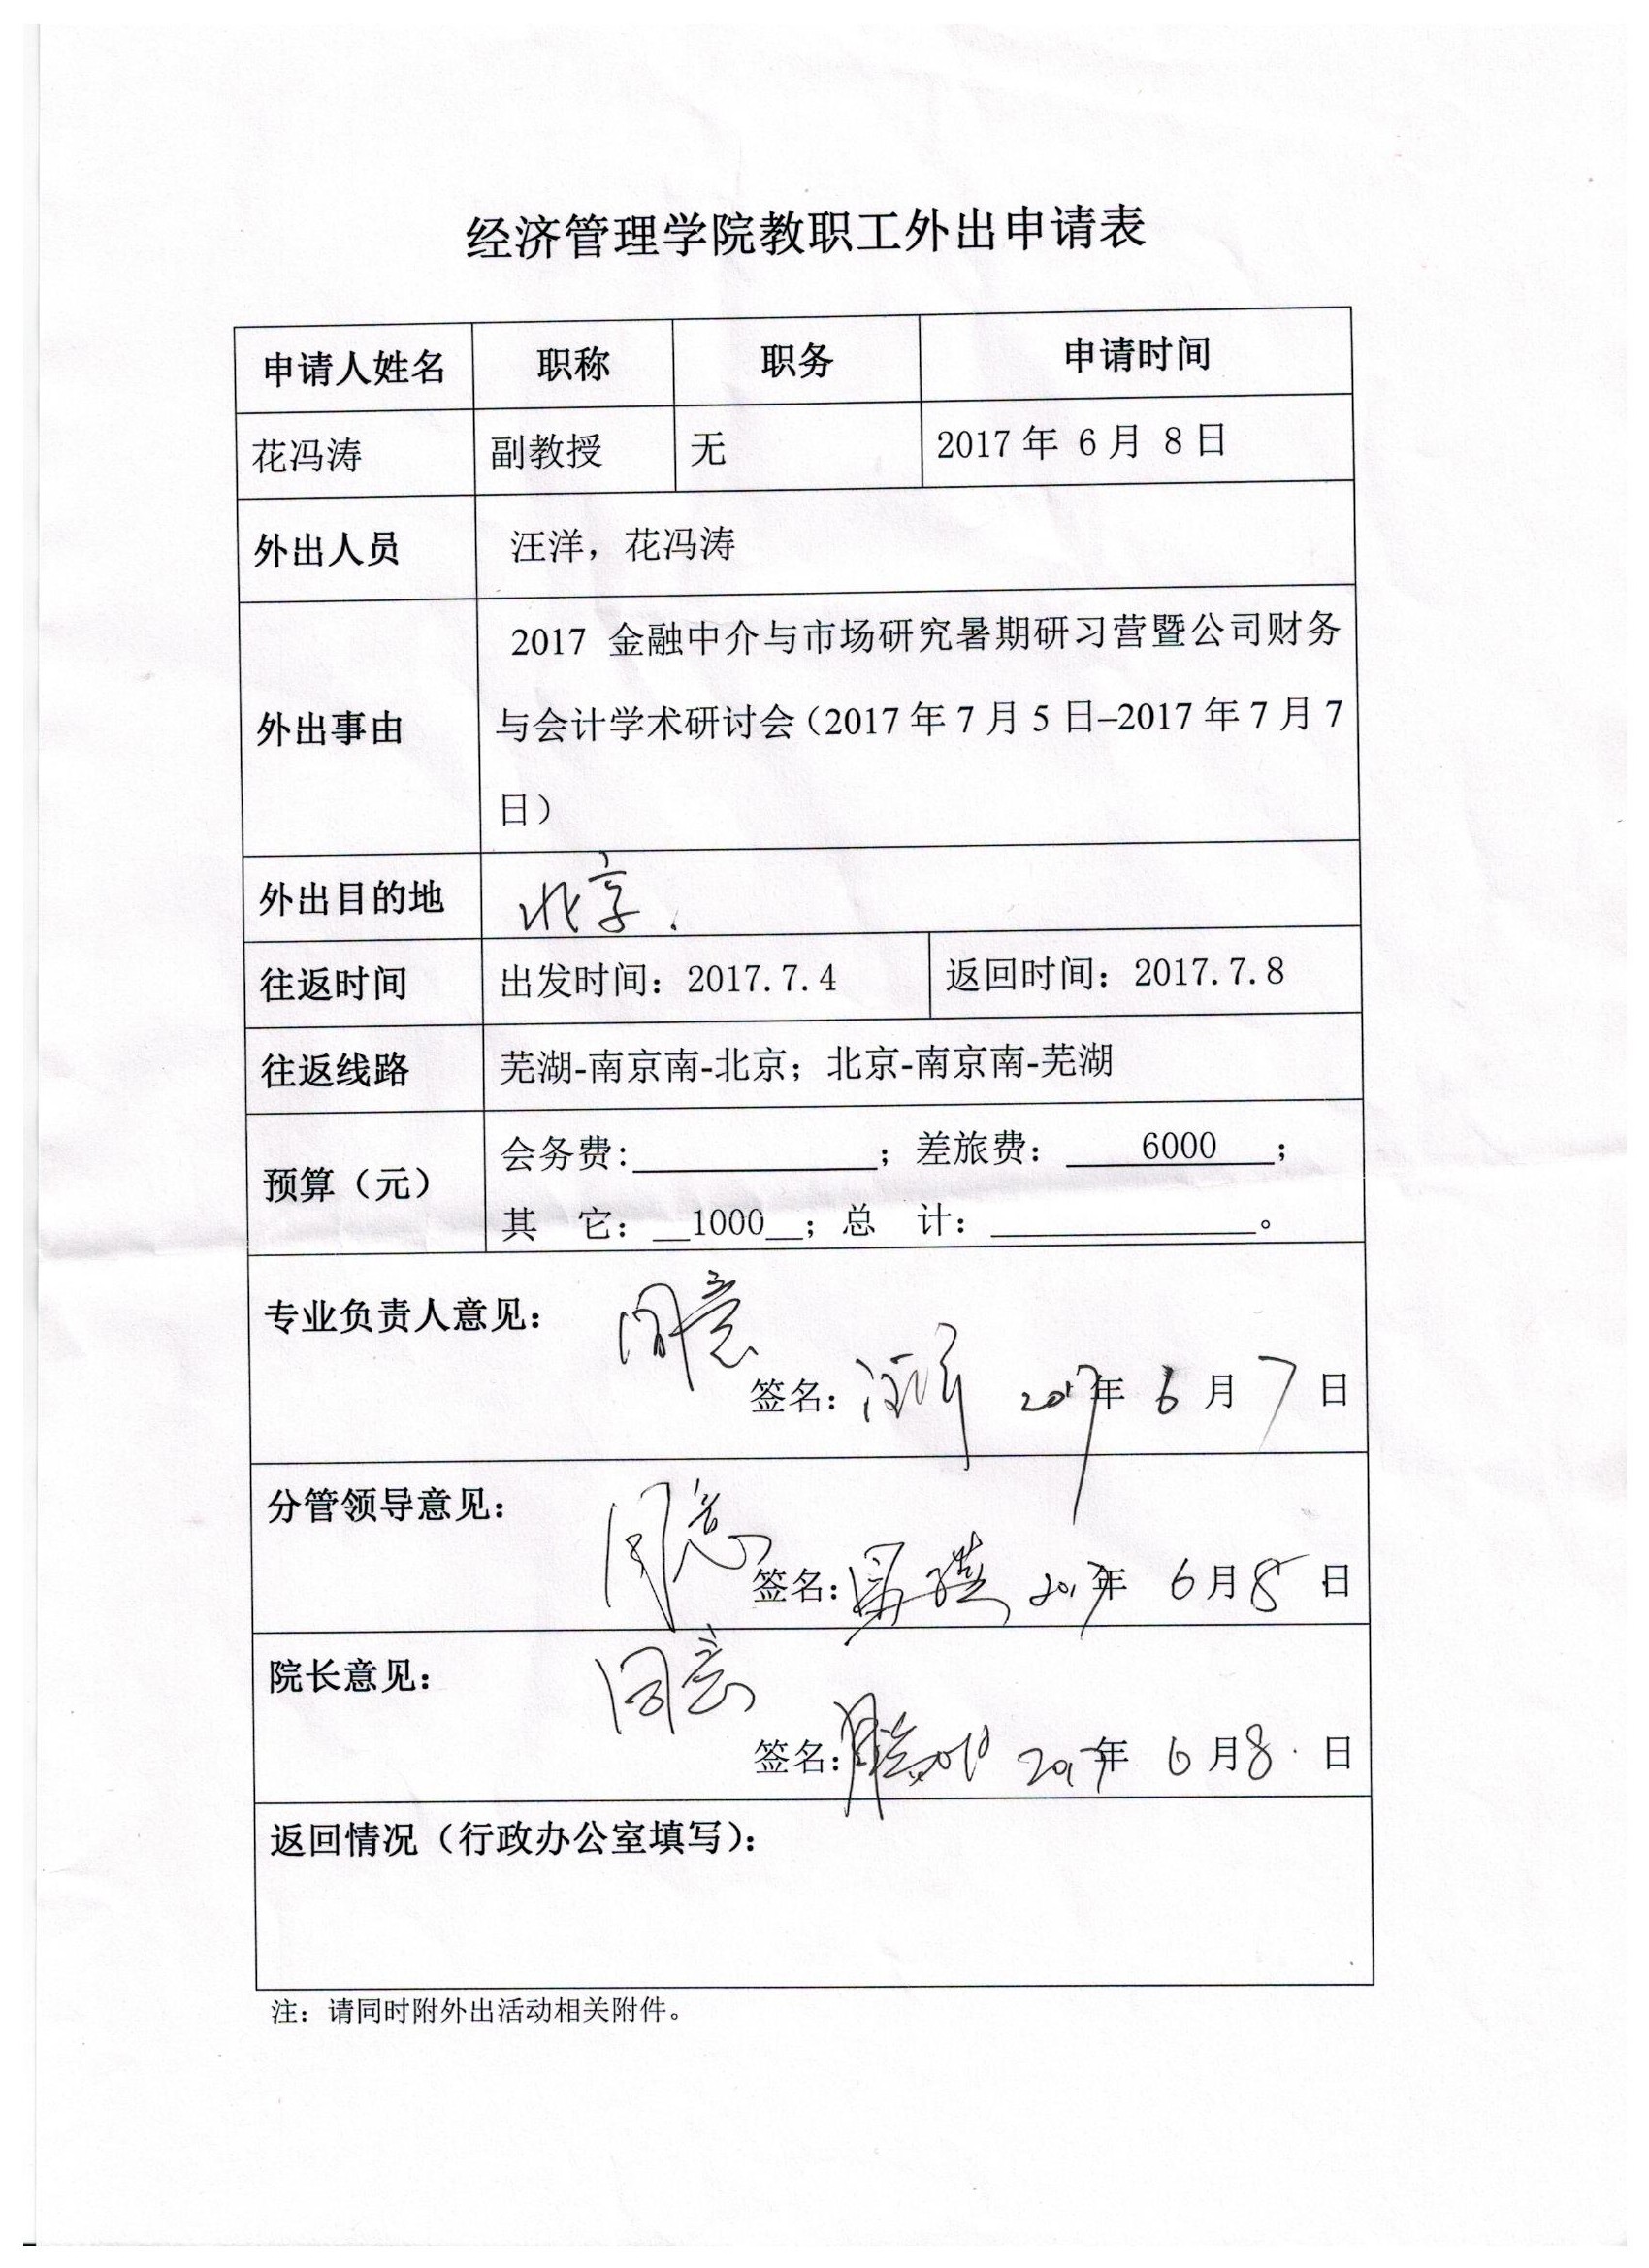 经济管理学院教职工外出申请表
申请人姓名 职称 职务 申请时间
花冯涛 副教授 无 2017 年 6 月 8 日
外出人员 汪洋，花冯涛
外出事由
2017 金融中介与市场研究暑期研习营暨公司财务
与会计学术研讨会（2017 年 7 月 5 日–2017 年 7 月 7
日）
外出目的地 北京.
往返时间 出发时间：2017.7.4 返回时间：2017.7.8
往返线路 芜湖-南京南-北京；北京-南京南-芜湖
预算（元）
会务费：____________；差旅费：____6000___；
其 它：__1000__；总 计：______________。
专业负责人意见： 同意
签名： 2017年 6 月 7 日
分管领导意见： 同意
签名： 2017年 6 月 8 日
院长意见： 同意
签名： 2017年 6 月 8 日
返回情况（行政办公室填写）：
注：请同时附外出活动相关附件。